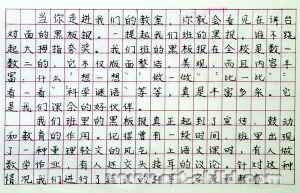 当你走进我们的教室，你就会看见在讲台
对面的黑板报。一提起我们班的黑板报，谁不跷
起大拇指夸奖。我们班的黑板报在全校是数一
数二的。它不仅版面整洁、美观，而且内容丰
富，什么“想一想”“做一做”“比一比”“
看一看”“科学谜语”等等，真是丰富多采。它
是我们课余的好伙伴。
我们班里的黑板报真正起到了宣传、鼓动
和教育的作用。记得曾有一段时间，班里出现
了一种重理轻文的风气，上语文课时，有人做
数学作业，有人还交头接耳的议论。针对这种
情况我们进行了